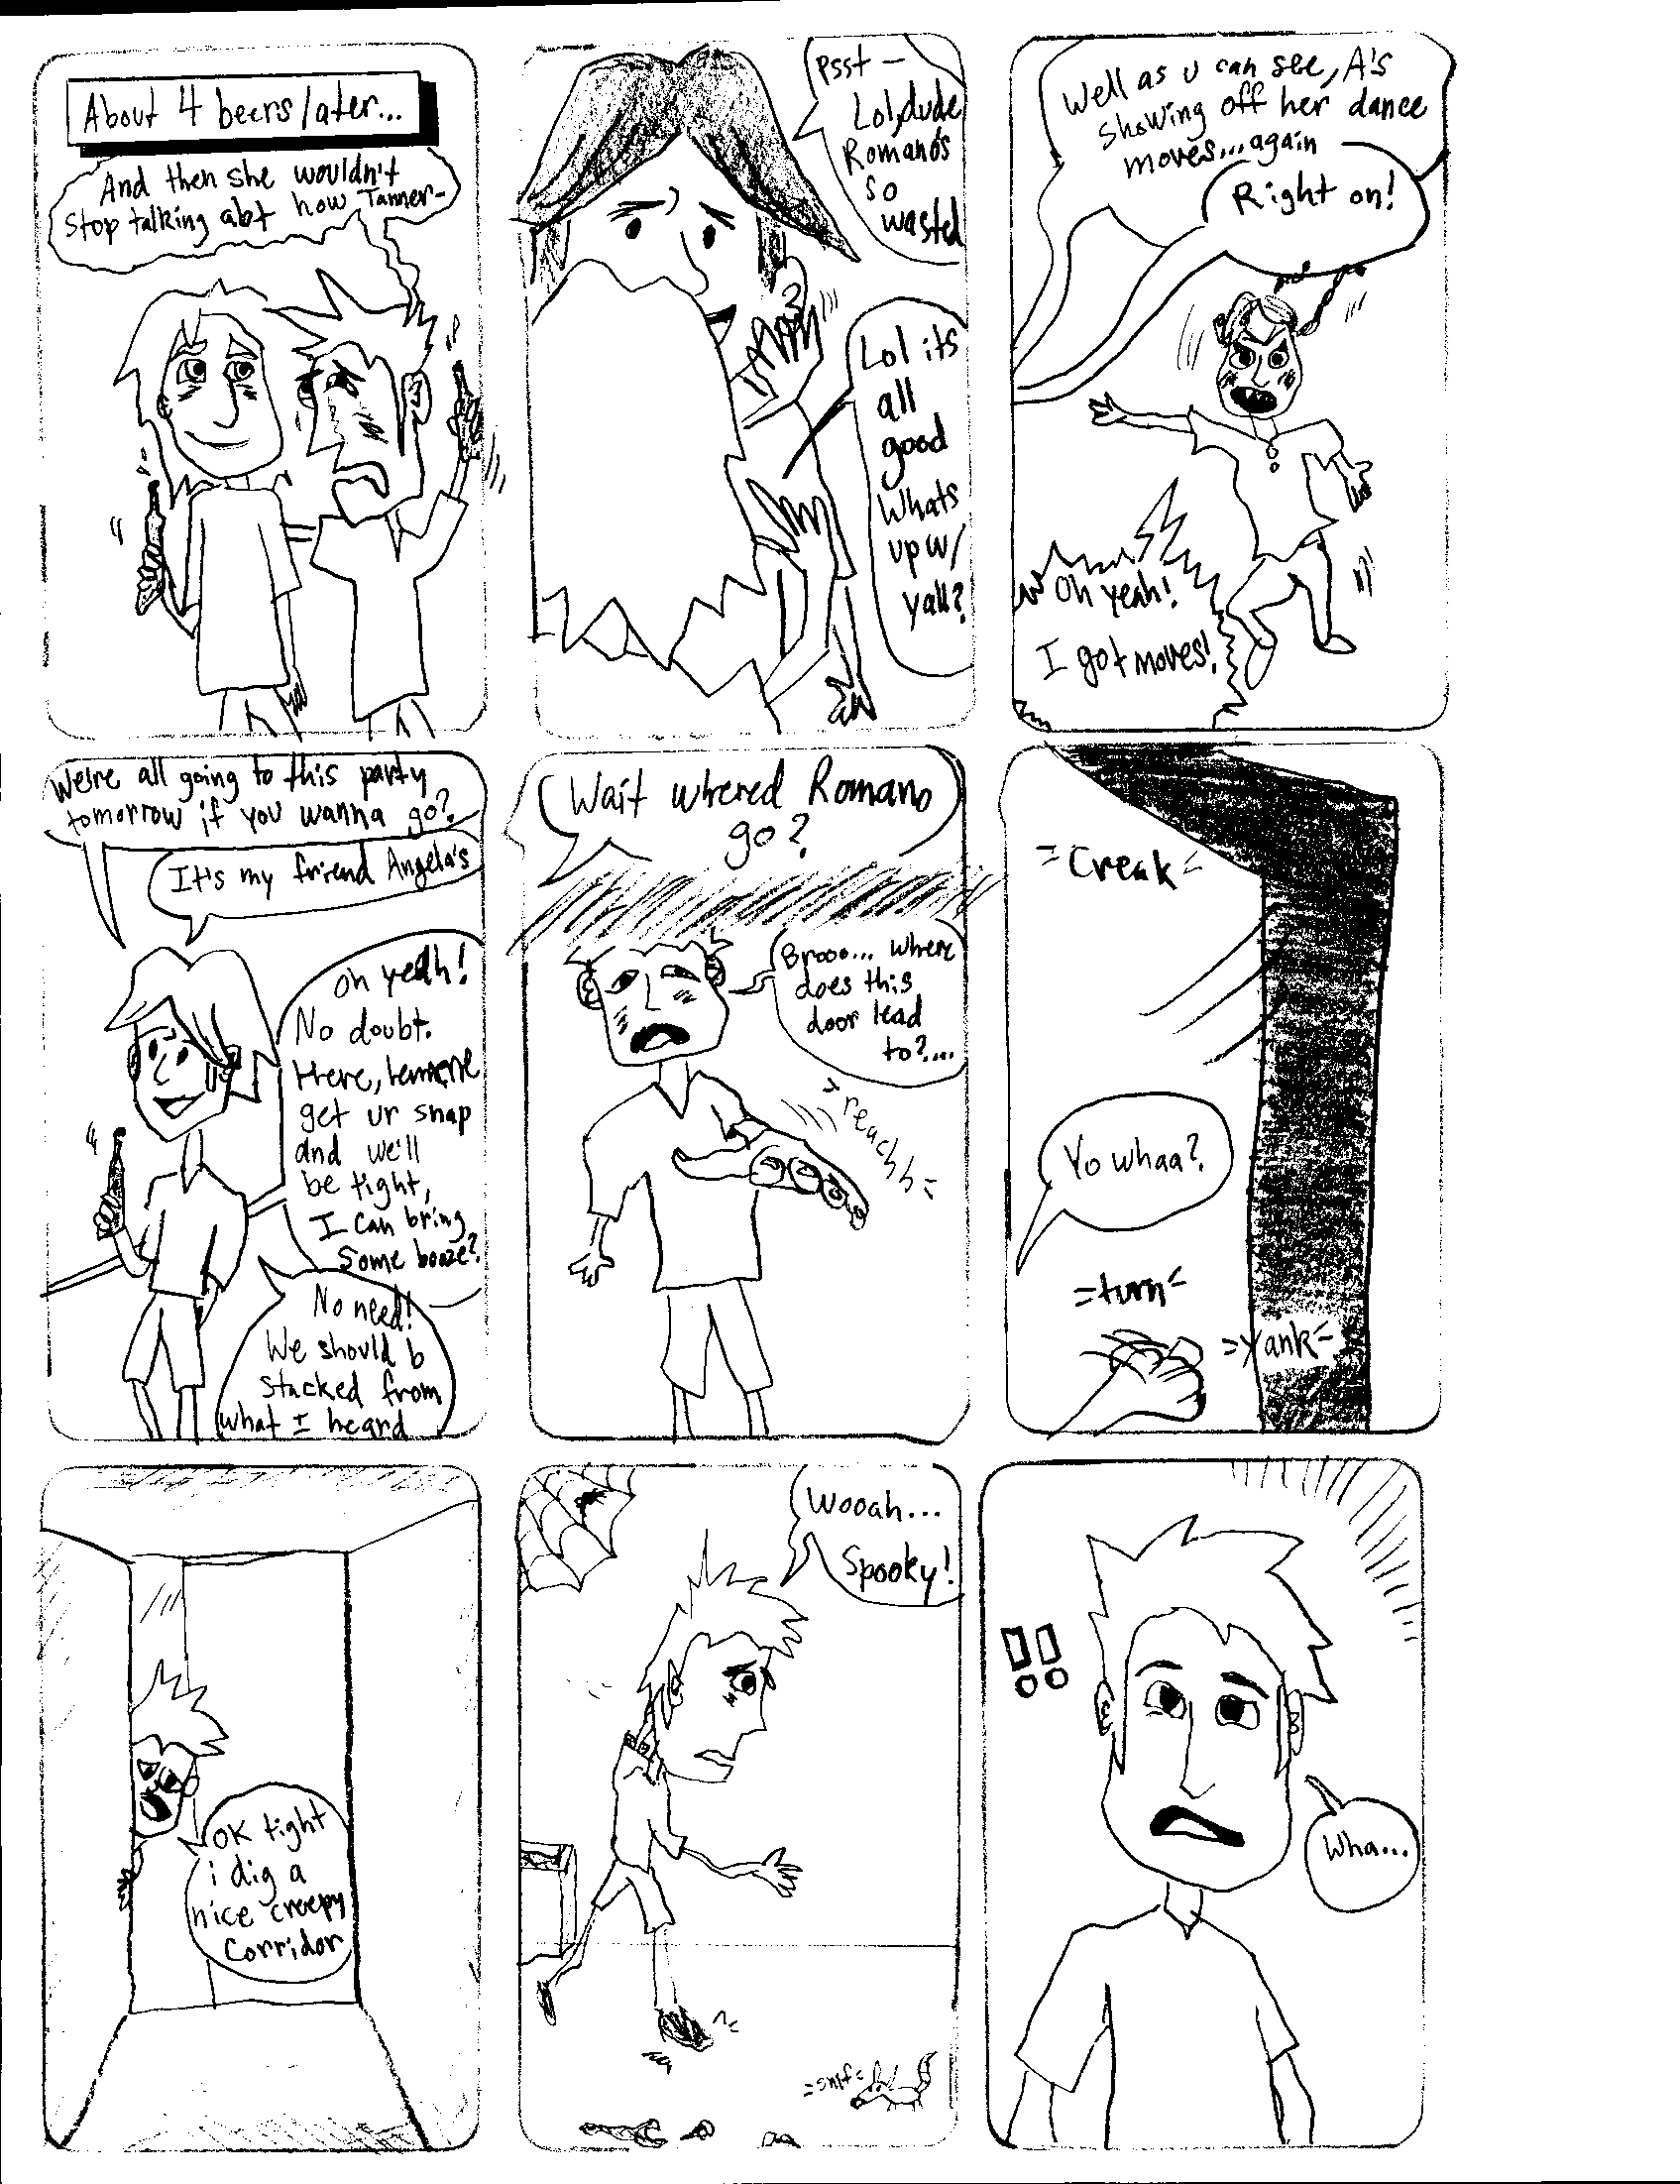 About 4 beers later...
And then she wouldn't
stop talking abt how Tanner-
Psst -
Lol, dude
Romano's
so
wasted
Lol its
all
good
Whats
up w/
yall?
Well as u can see, A's
showing off her dance
moves...again
Right on!
Oh yeah!
I got moves!
We're all going to this party
tomorrow if you wanna go?
It's my friend Angela's
Oh yeah!
No doubt.
Here, lemme
get ur snap
and we'll
be tight,
I can bring
some booze?
No need!
We should b
stacked from
what I heard
Wait whered Romano
go?
Brooo... where
does this
door lead
to?....
=reachh=
=Creak=
Yo whaa?
=turn=
=Yank=
OK tight
i dig a
nice creepy
corridor
Wooah...
Spooky!
=snif=
!!
Wha...